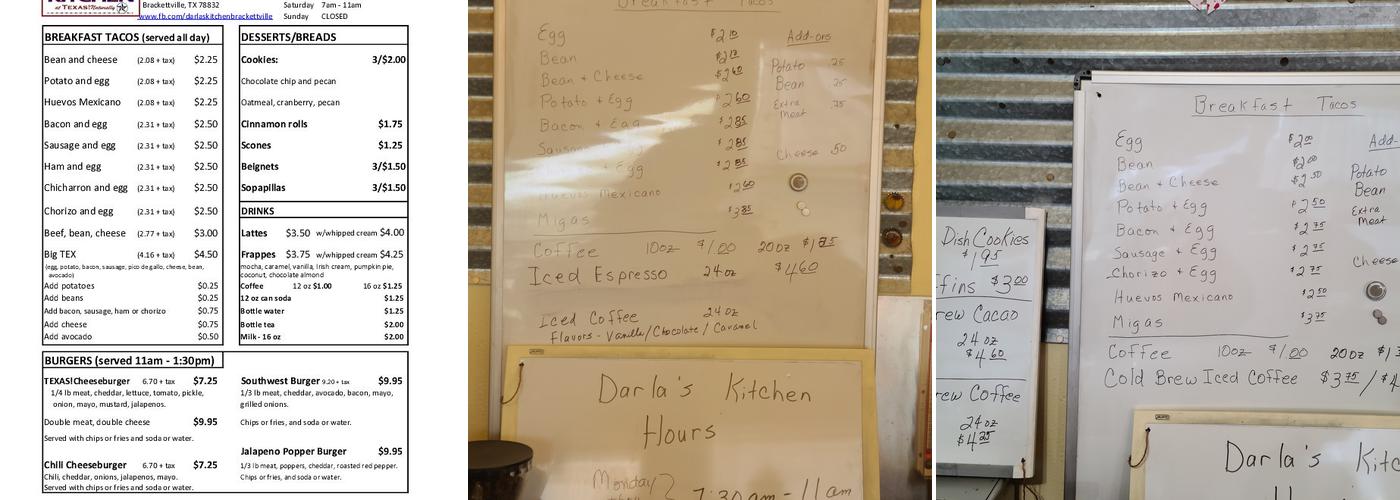 KITCHEN
at TEXAS! Naturally
Brackettville, TX 78832
Saturday 7am - 11am
www.fb.com/darlaskitchenbrackettville
Sunday CLOSED
BREAKFAST TACOS (served all day)
Bean and cheese (2.08 + tax) $2.25
Potato and egg (2.08 + tax) $2.25
Huevos Mexicano (2.08 + tax) $2.25
Bacon and egg (2.31 + tax) $2.50
Sausage and egg (2.31 + tax) $2.50
Ham and egg (2.31 + tax) $2.50
Chicharron and egg (2.31 + tax) $2.50
Chorizo and egg (2.31 + tax) $2.50
Beef, bean, cheese (2.77 + tax) $3.00
Big TEX (4.16 + tax) $4.50
(egg, potato, bacon, sausage, pico de gallo, cheese, bean,
avocado)
Add potatoes $0.25
Add beans $0.25
Add bacon, sausage, ham or chorizo $0.75
Add cheese $0.75
Add avocado $0.50
DESSERTS/BREADS
Cookies: 3/$2.00
Chocolate chip and pecan
Oatmeal, cranberry, pecan
Cinnamon rolls $1.75
Scones $1.25
Beignets 3/$1.50
Sopapillas 3/$1.50
DRINKS
Lattes $3.50 w/whipped cream $4.00
Frappes $3.75 w/whipped cream $4.25
mocha, caramel, vanilla, Irish cream, pumpkin pie,
coconut, chocolate almond
Coffee 12 oz $1.00 16 oz $1.25
12 oz can soda $1.25
Bottle water $1.25
Bottle tea $2.00
Milk - 16 oz $2.00
BURGERS (served 11am - 1:30pm)
TEXAS!Cheeseburger 6.70 + tax $7.25
1/4 lb meat, cheddar, lettuce, tomato, pickle,
onion, mayo, mustard, jalapenos.
Double meat, double cheese $9.95
Served with chips or fries and soda or water.
Chili Cheeseburger 6.70 + tax $7.25
Chili, cheddar, onions, jalapenos, mayo.
Served with chips or fries and soda or water.
Southwest Burger 9.20 + tax $9.95
1/3 lb meat, cheddar, avocado, bacon, mayo,
grilled onions.
Chips or fries, and soda or water.
Jalapeno Popper Burger $9.95
1/3 lb meat, poppers, cheddar, roasted red pepper.
Chips or fries, and soda or water.
Breakfast Tacos
Egg $2.10
Bean
Bean + Cheese $2.60
Potato + Egg $2.60
Bacon + Egg $2.85
Sausage $2.85
+ Egg $2.85
Huevos Mexicano $2.60
Migas $3.85
Add-ons
Potato .25
Bean .25
Extra .75
meat
Cheese .50
Coffee 10oz $1.00 20oz
Iced Espresso 24oz $4.60
Iced Coffee 24oz
Flavors - Vanilla/Chocolate/Caramel
Darla's Kitchen
Hours
Monday
7:30am - 11am
Dish Cookies
$1.95
ffins $3.00
rew Cacao
24 oz
$4.60
rew Coffee
24oz
$4.25
Breakfast Tacos
Egg $2.00
Bean $2.00
Bean + Cheese $2.50
Potato + Egg $2.50
Bacon + Egg $2.75
Sausage + Egg $2.75
Chorizo + Egg $2.75
Huevos Mexicano $2.50
Migas $3.75
Add-
Potato
Bean
Extra
meat
Cheese
Coffee 10oz $1.00 20oz
Cold Brew Iced Coffee $3.75 / $4
Darla's Kitc